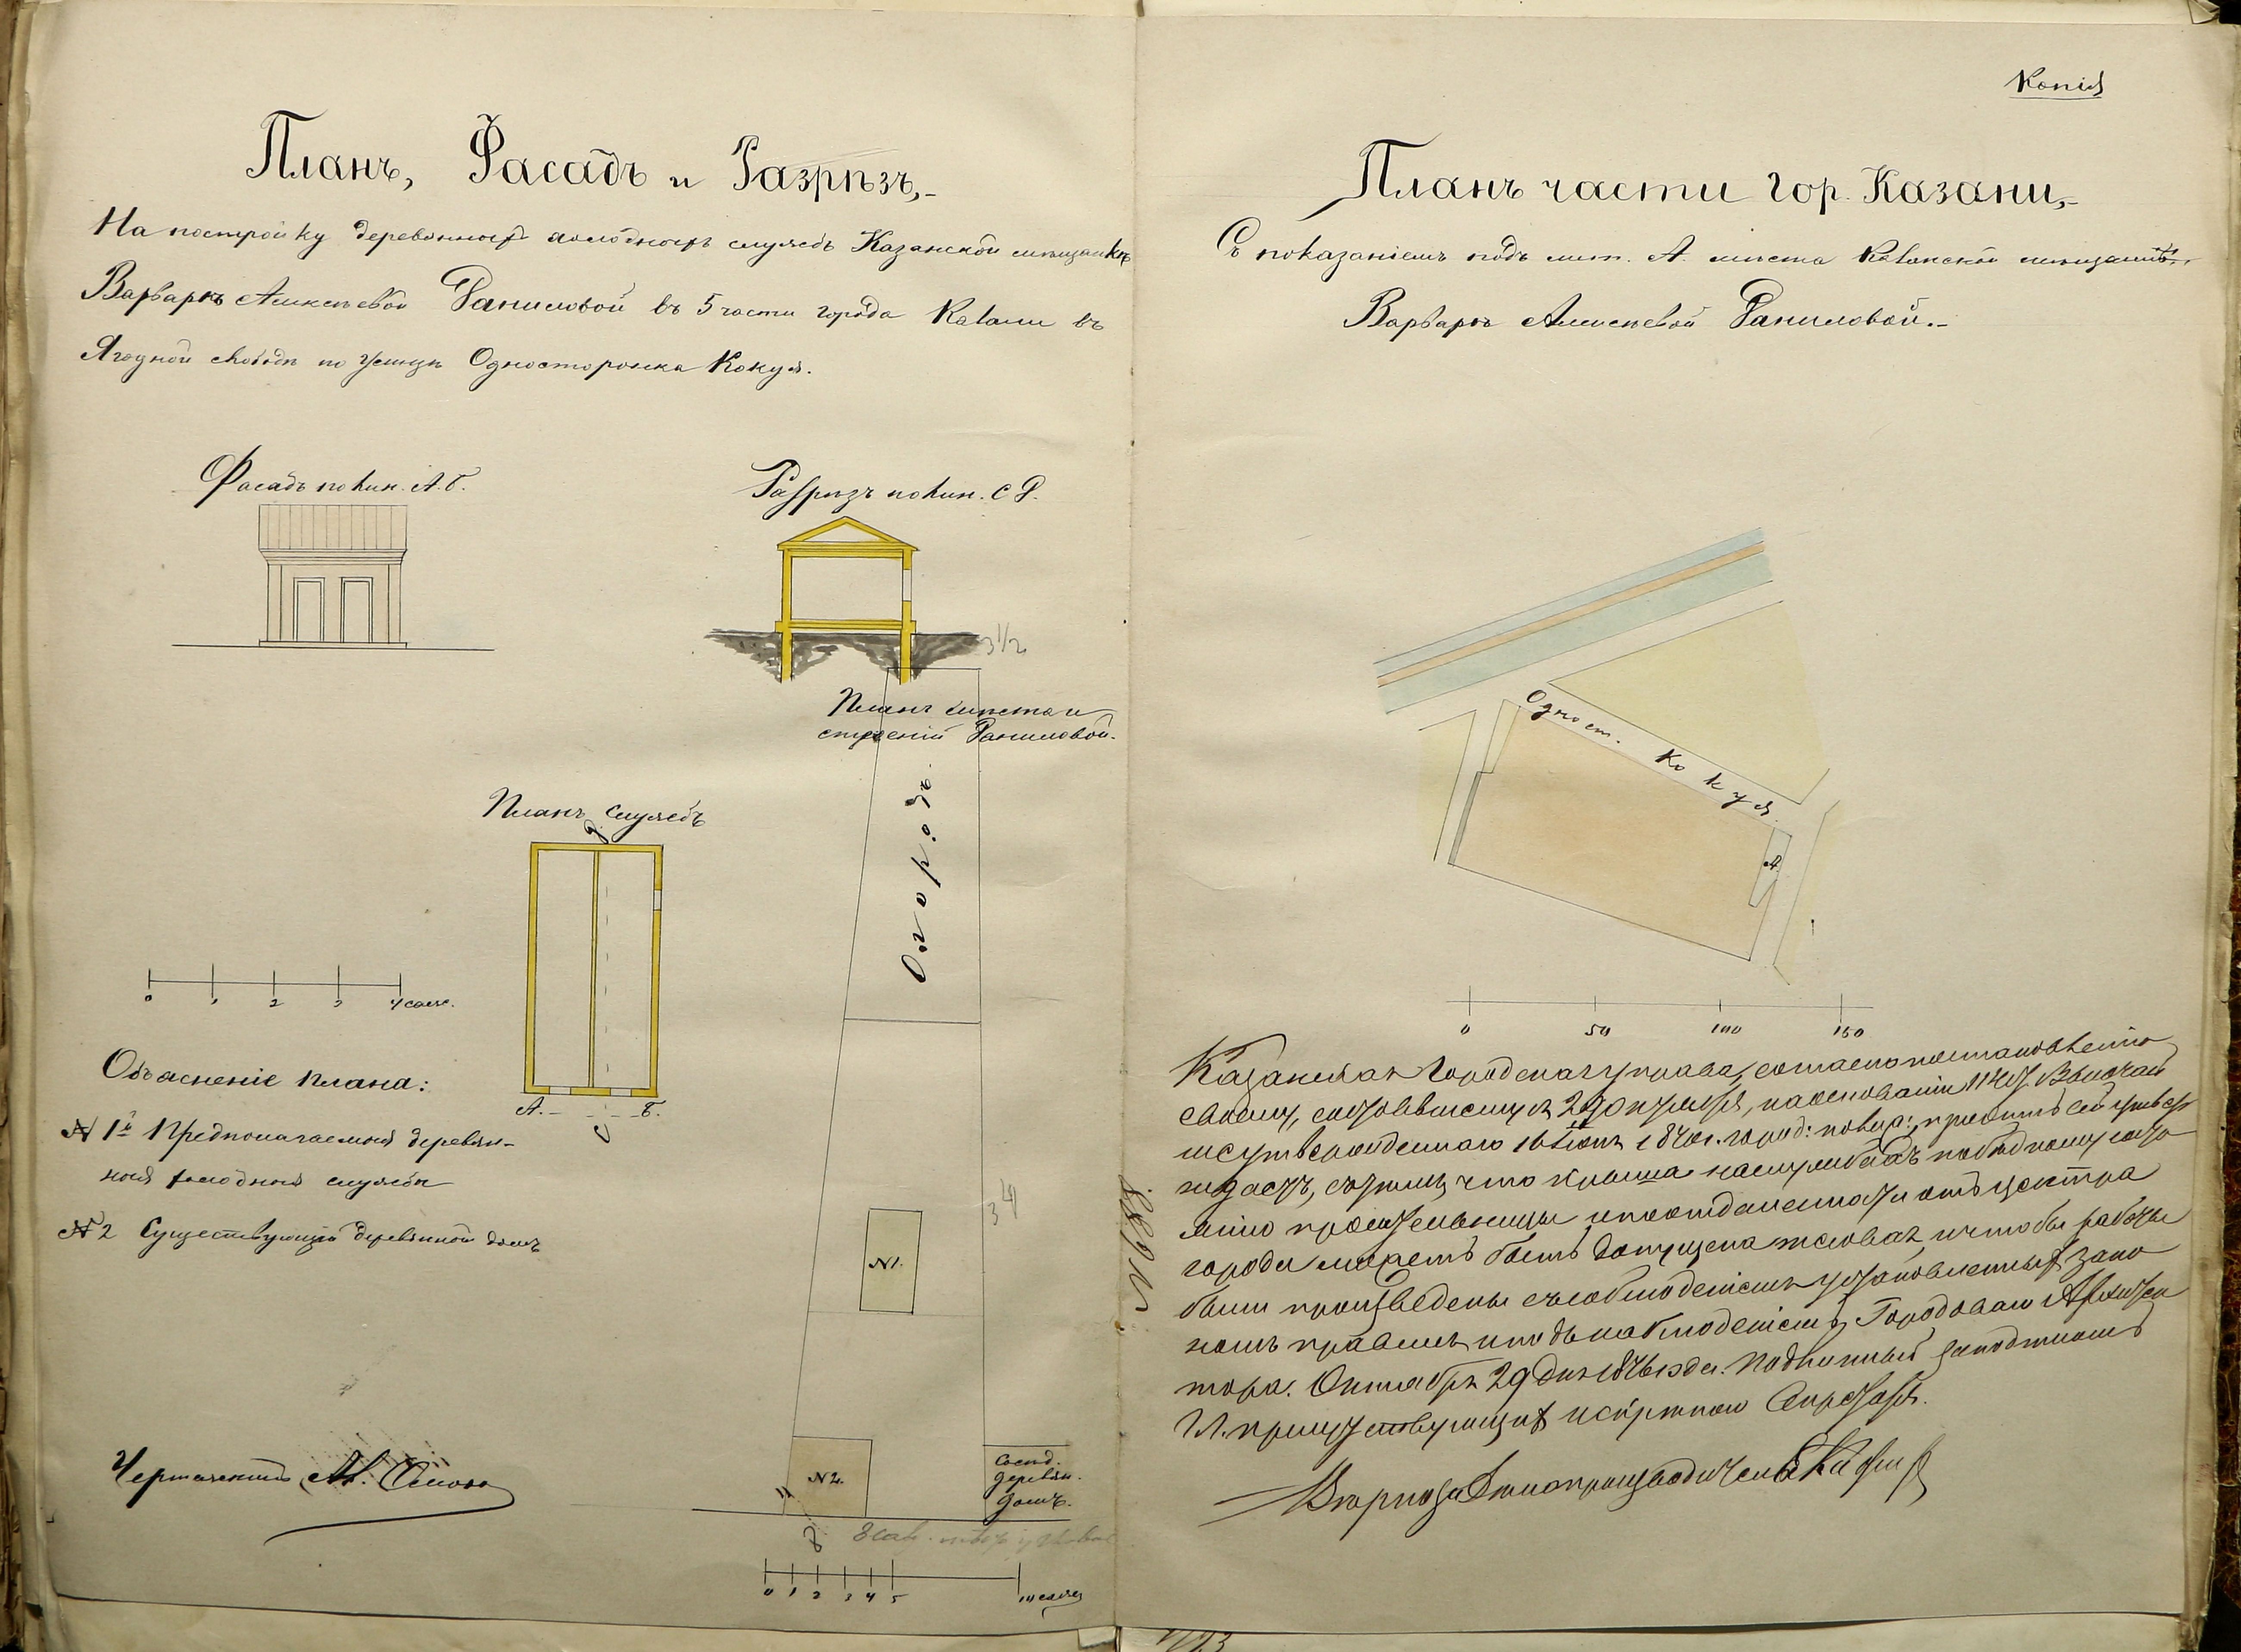 Планъ, Фасадъ и Разрѣзъ,-
На постройку деревянныхъ холодныхъ службъ Казанской мѣщанкѣ
Варварѣ Алексѣевой Даниловой въ 5 части города Казани въ
Ягодной слободѣ по улицѣ Односторонка Кокуя.
Фасадъ по лин. А.Б.
Разрѣзъ по лин. С Д.
3 1/2
Планъ мѣста и
строеній Даниловой.
Огородъ.
Планъ службъ
Д
А. Б.
С
0 1 2 3 4 саж.
Объясненіе плана:
№ 1й Предполагаемыя деревян-
ныя холодныя службы
№ 2 Существующій деревянной домъ
34
№1.
№2.
Сосѣд.
деревян.
домъ.
8 саж.
0 1 2 3 4 5 10 сажен
Чертежникъ Ал.
Копія
Планъ части гор. Казани,-
Съ показаніемъ подъ лит. А. мѣста Казанской мѣщанки
Варвары Алексѣевой Даниловой.-
Одност. Кокуя
А.
0 50 100 150
Казанская Городская управа, согласно постановленію
своему, состоявшемуся 29 октября, на основаніи 114 ст. Высочай
ше утвержденнаго 16 Іюня 1870 г. город: полож:, проектъ сей утверж
даетъ, съ тѣмъ, что крыша на службахъ по бѣдному состо
янію просительницы и по отдаленности отъ центра
города можетъ быть допущена тесовая, и чтобы работы
были произведены съ соблюденіемъ установленныхъ зако
номъ правилъ и подъ наблюденіемъ Городоваго Архитек
тора. Октября 29 дня 1876 года. Подлинный за подписомъ
Гг. присутствующихъ и скрѣпою Секретаря.
Вѣрно: за Дѣлопроизводителя